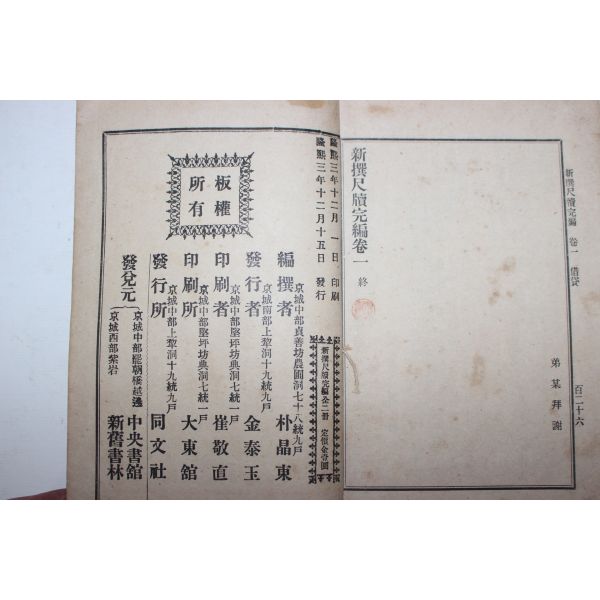 新撰尺牘完編 卷一 借貸
百二十六
弟某拜謝
新撰尺牘完編卷一 終
隆熙三年十二月一日 印刷
隆熙三年十二月十五日 發行
新撰尺牘完編全二冊 定價金壹圜
板權
所有
編撰者 京城中部貞善坊農圃洞七十八統九戶 朴晶東
發行者 京城南部上犂洞十九統九戶 金泰玉
印刷者 京城中部堅坪坊典洞七統一戶 崔敬直
印刷所 京城中部堅坪坊典洞七統一戶 大東舘
發行所 京城中部上犂洞十九統九戶 同文社
發兌元
京城中部罷朝橋越邊 中央書舘
京城西部紫岩 新舊書林